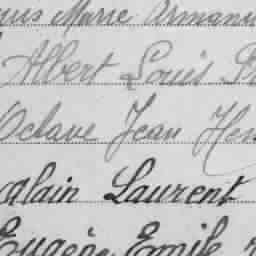 Marie Armand
Albert Louis
Octave Jean Hen
Alain Laurent
Eugène Emile